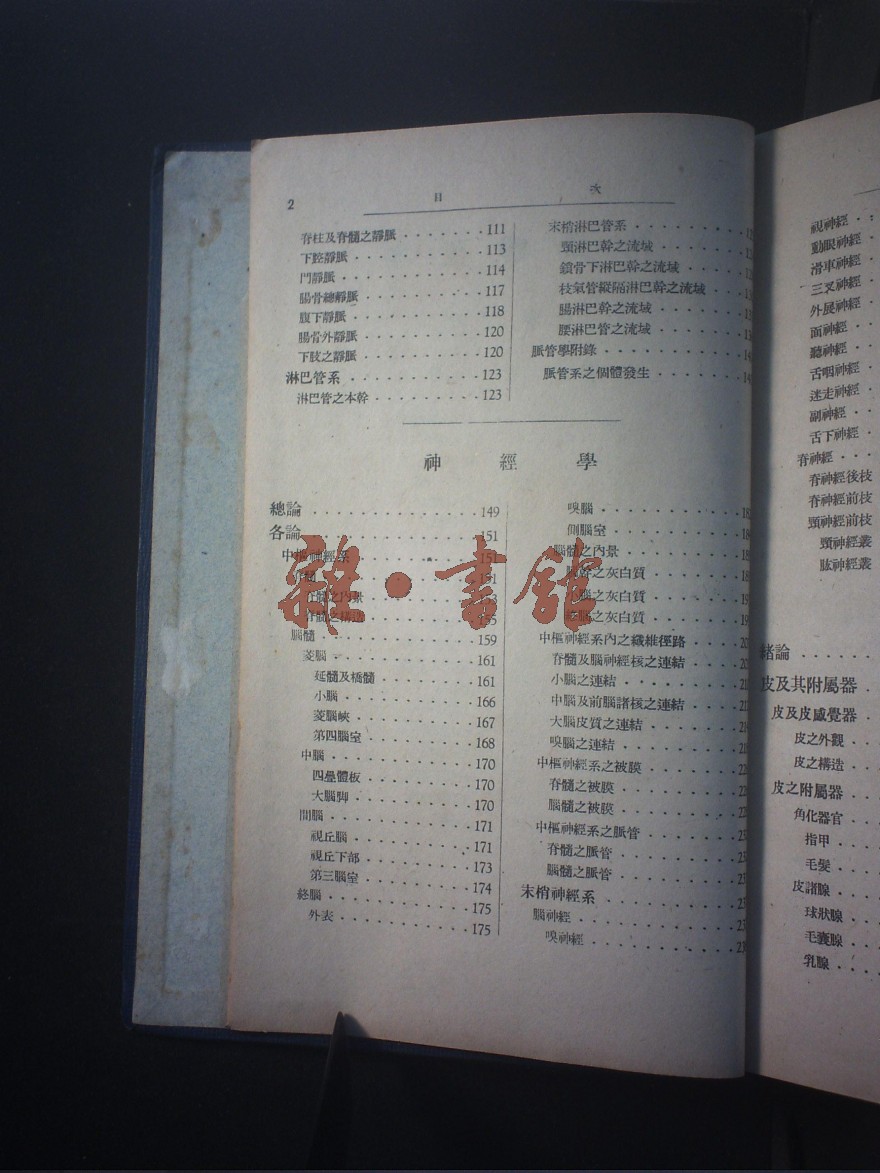 2 目 次
脊柱及脊髓之靜脈 111
下腔靜脈 113
門靜脈 114
腸骨總靜脈 117
腹下靜脈 118
腸骨外靜脈 120
下肢之靜脈 120
淋巴管系 123
淋巴管之本幹 123
末梢淋巴管系
頸淋巴幹之流域
鎖骨下淋巴幹之流域
枝氣管縱隔淋巴幹之流域
腸淋巴幹之流域
腰淋巴管之流域
脈管學附錄
脈管系之個體發生
神 經 學
總論 149
各論 151
中樞神經系 151
脊髓 151
脊髓之內景
脊髓之構造 155
腦髓 159
菱腦 161
延髓及橋髓 161
小腦 166
菱腦峽 167
第四腦室 168
中腦 170
四疊體板 170
大腦脚 170
間腦 171
視丘腦 171
視丘下部 173
第三腦室 174
終腦 175
外表 175
嗅腦
側腦室
腦髓之內景
腦幹之灰白質
小腦之灰白質
終腦之灰白質
中樞神經系內之纖維徑路
脊髓及腦神經核之連結
小腦之連結
中腦及前腦諸核之連結
大腦皮質之連結
嗅腦之連結
中樞神經系之被膜
脊髓之被膜
腦髓之被膜
中樞神經系之脈管
脊髓之脈管
腦髓之脈管
末梢神經系
腦神經
嗅神經
視神經
動眼神經
滑車神經
三叉神經
外展神經
面神經
聽神經
舌咽神經
迷走神經
副神經
舌下神經
脊神經
脊神經後枝
脊神經前枝
頸神經前枝
頸神經叢
肱神經叢
緒論
皮及其附屬器
皮及皮感覺器
皮之外觀
皮之構造
皮之附屬器
角化器官
指甲
毛髮
皮諸腺
球狀腺
毛囊腺
乳腺
雜·書館